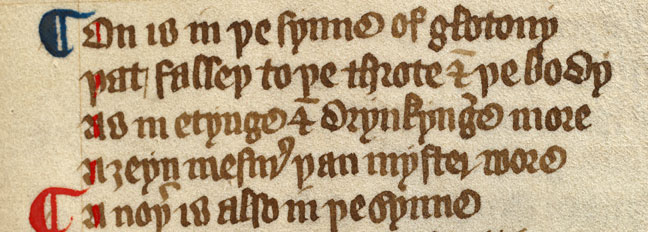 ¶ On is in þe synne of glotony
þat falleþ to þe throte & þe body
As in etynge & drynkynge more
Aȝeyn mesur þan myster wore
¶ Anoþ is also in þe synne